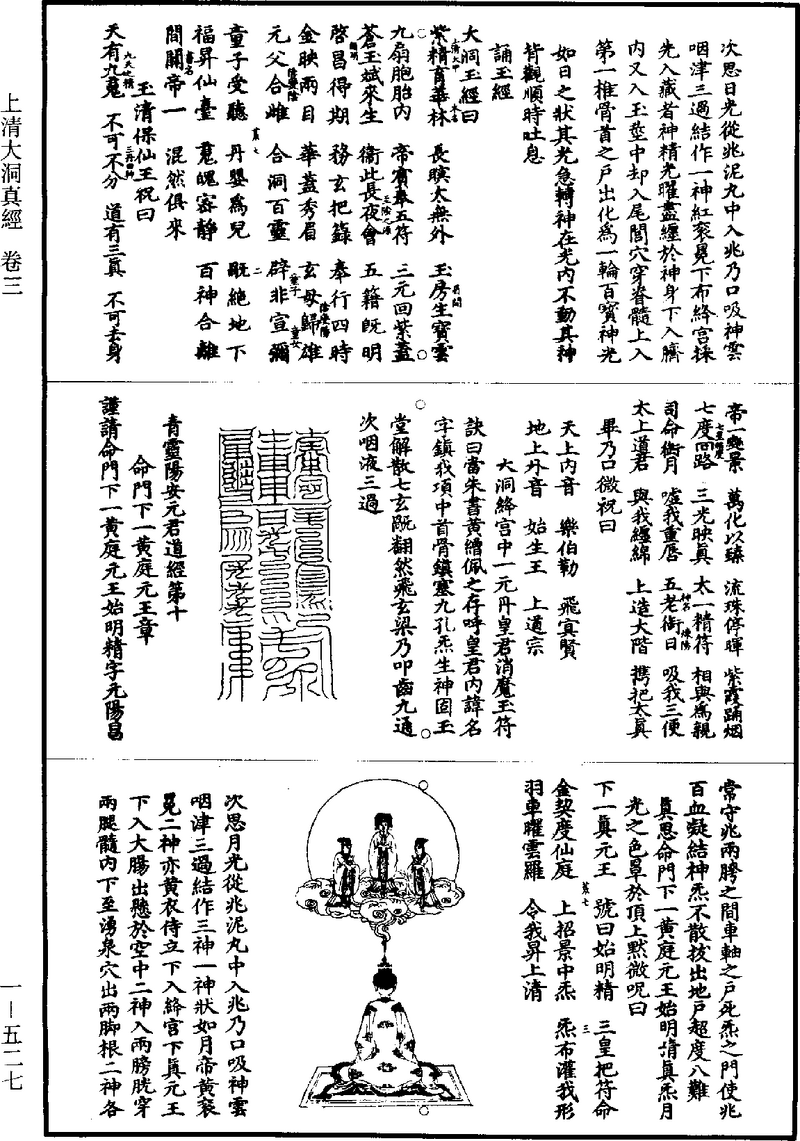 上清大洞真經 卷三
一—五二七
次思日光從兆泥丸中入兆乃口吸神雲
咽津三過結作一神紅衮冕下布絳宮採
先入藏者神精光曜盡纏於神身下入臍
内又入玉莖中却入尾閭穴穿脊髓上入
第一椎骨首之戶出化爲一輪百寳神光
如日之狀其光急轉神在光内不動其神
背觀順時吐息
誦玉經
大洞玉經曰
紫精育華林 長瞑太無外 玉房生寳雲
九扇胞胎内 帝賓奉五符 三元回紫蓋
蒼玉斌來生 衞此長夜會 五籍旣明
啓昌得期 務玄把籙 奉行四時
金映兩目 華蓋秀眉 玄母歸雄
元父合雌 合洞百靈 辟非宣彌
童子受聽 丹嬰爲兒 旣絶地下
福昇仙臺 䰟魄審静 百神合離
間關帝一 混然俱來
玉清保仙王祝曰
天有九䰟 不可不分 道有三眞 不可去身
帝一變景 萬化以臻 流珠停暉 紫霞踊烟
七度回路 三光映眞 太一精符 相與爲親
司命銜月 噓我重唇 五老銜日 吸我三便
太上道君 與我纏綿 上造大階 携把太眞
畢乃口微祝曰
天上内音 樂伯勤 飛寘賢
地上丹音 始生王 上道宗
大洞絳宮中一元丹皇君消魔玉符
訣曰當朱書黄繒佩之存呼皇君内諱名
字鎮我項中首骨鎮塞九孔炁生神固玉
堂解散七玄旣翻然飛玄梁乃叩齒九通
次咽液三過
青靈陽安元君道經第十
命門下一黄庭元王章
謹請命門下一黄庭元王始明精字元陽昌
常守兆兩胯之間車軸之戶死炁之門使兆
百血凝結神炁不散拔出地戶超度八難
眞思命門下一黄庭元王始明精眞炁月
光之色罩於頂上默微呪曰
下一眞元王 號曰始明精 三皇把符命
金契度仙庭 上招景中炁 炁布灌我形
羽車曜雲羅 令我昇上清
次思月光從兆泥丸中入兆乃口吸神雲
咽津三過結作三神一神狀如月帝黄衮
冕二神亦黄衣侍立下入絳宮下眞元王
下入大腸出懸於空中二神入兩膀胱穿
兩腿髓内下至湧泉穴出兩脚根二神各